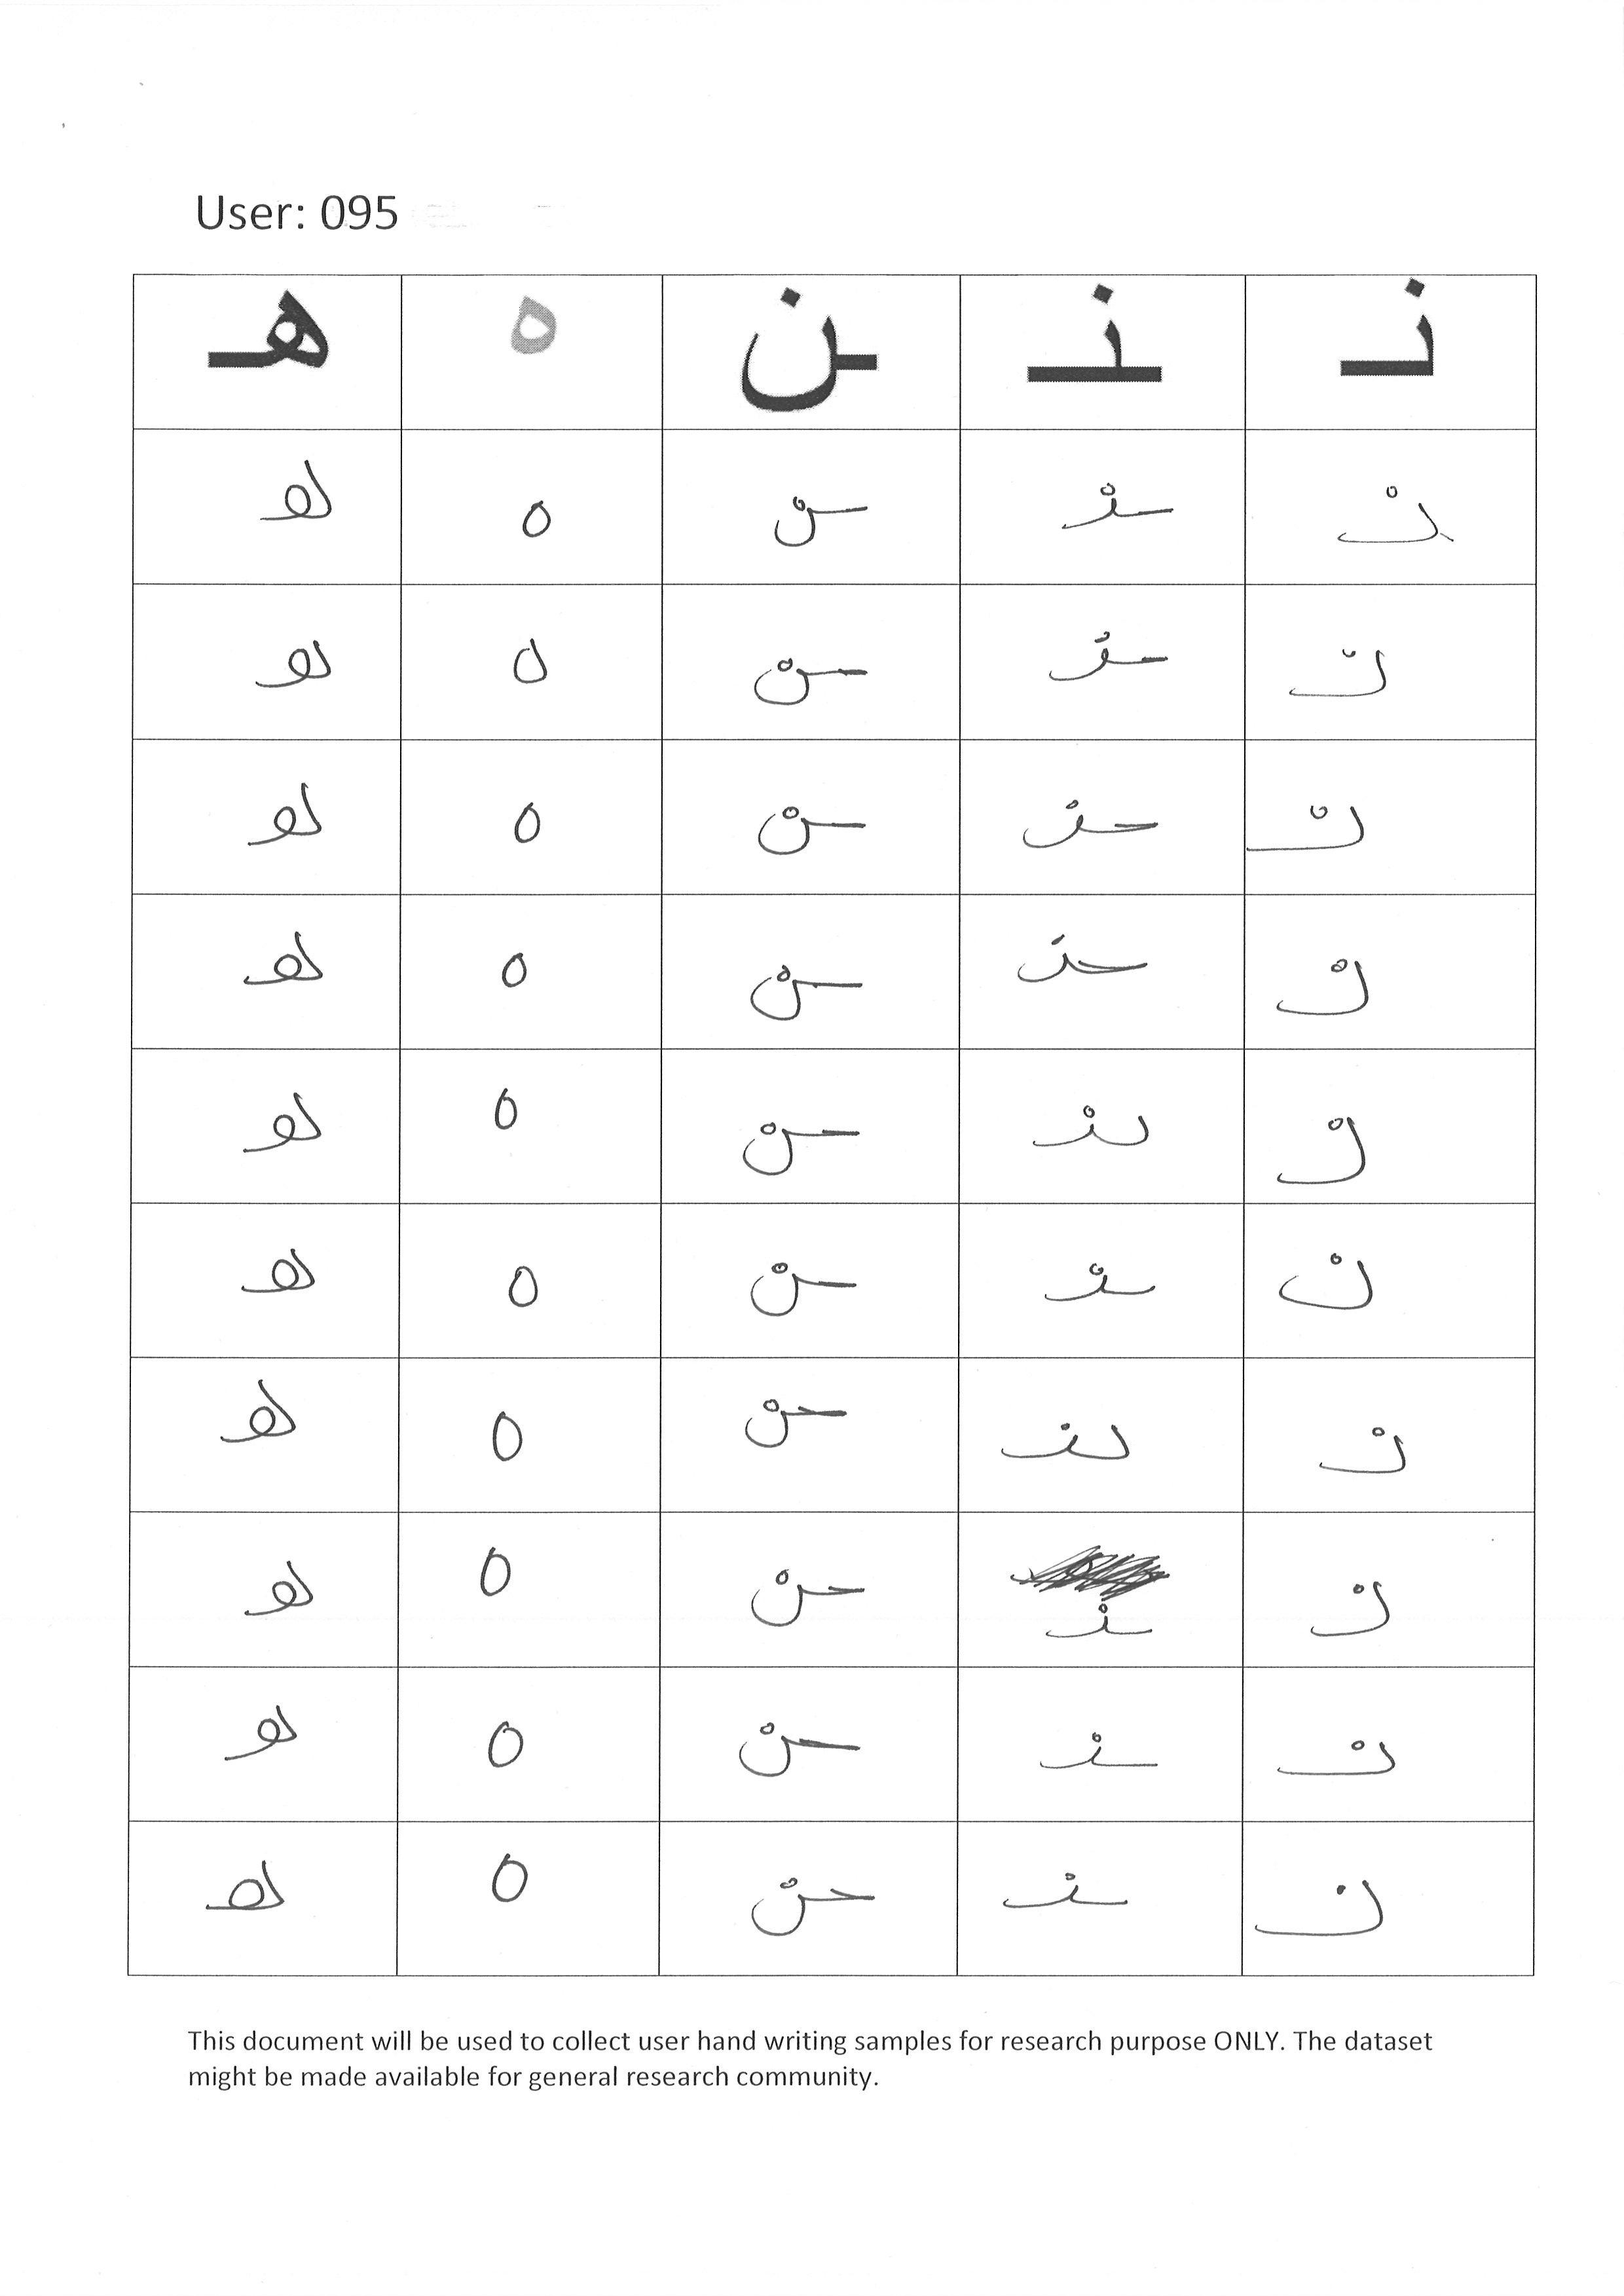 User: 095
نـ ـنـ ـن ه هـ
نـ ـنـ ـن ه هـ
نـ ـنـ ـن ه هـ
نـ ـنـ ـن ه هـ
نـ ـنـ ـن ه هـ
نـ ـنـ ـن ه هـ
نـ ـنـ ـن ه هـ
نـ ـنـ ـن ه هـ
نـ ـنـ ـن ه هـ
نـ ـنـ ـن ه هـ
نـ ـنـ ـن ه هـ
This document will be used to collect user hand writing samples for research purpose ONLY. The dataset
might be made available for general research community.